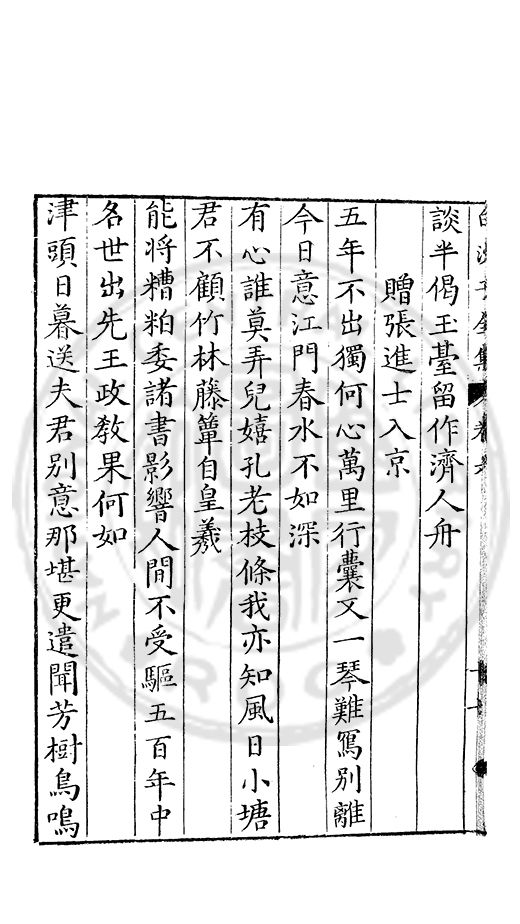 談半偈玉䑓留作濟人舟
贈張進士入京
五年不出獨何心萬里行囊又一琴難寫別離
今日意江門春水不如深
有心誰莫弄兒嬉孔老枝條我亦知風日小塘
君不顧竹林藤簟自皇羲
能將糟粕委諸書影響人間不受驅五百年中
名世出先王政敎果何如
津頭日暮送夫君別意那堪更遣聞芳樹鳥鳴